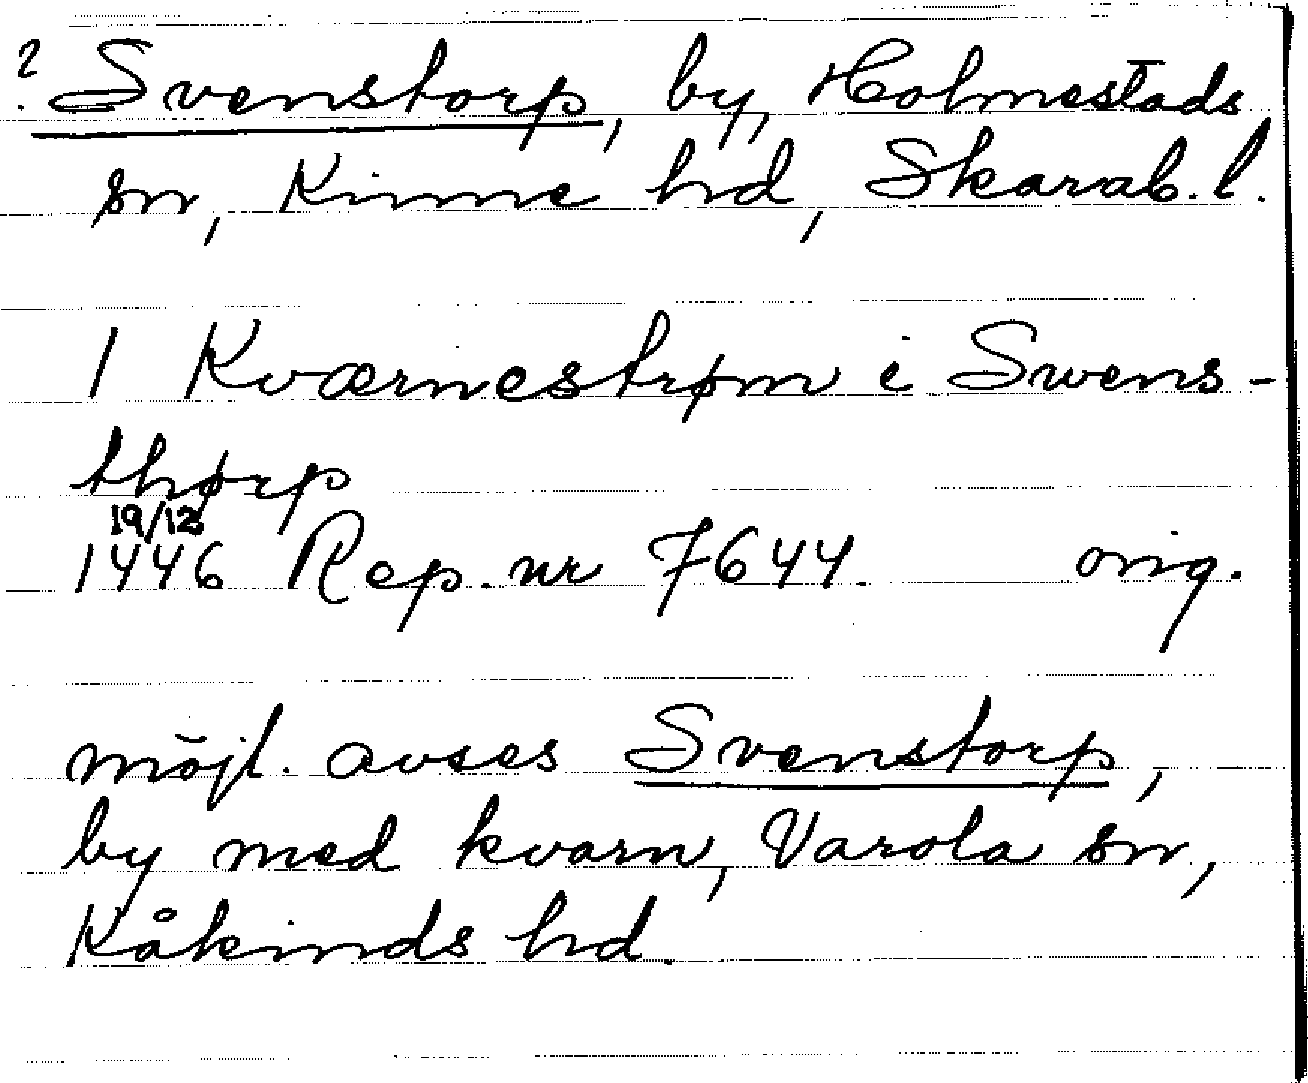 ? Svenstorp, by, Holmestads
sn, Kinne hd, Skarab. l.
1 Kværnestrøm i Swens-
thørp
19/12
1446 Rep. nr 7644. orig.
möjl. avses Svenstorp,
by med kvarn, Varola sn,
Kåkinds hd.